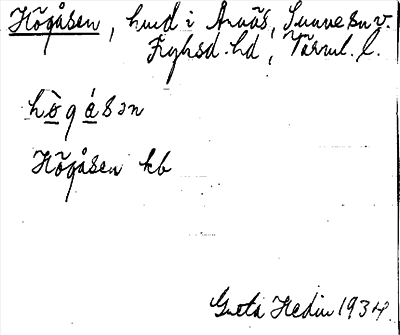 Högåsen, hmd i Arnäs, Sunnesn v.
Fryksd. hd, Värml. l.
hògásən
Högåsen kb
Greta Hedin 1934.